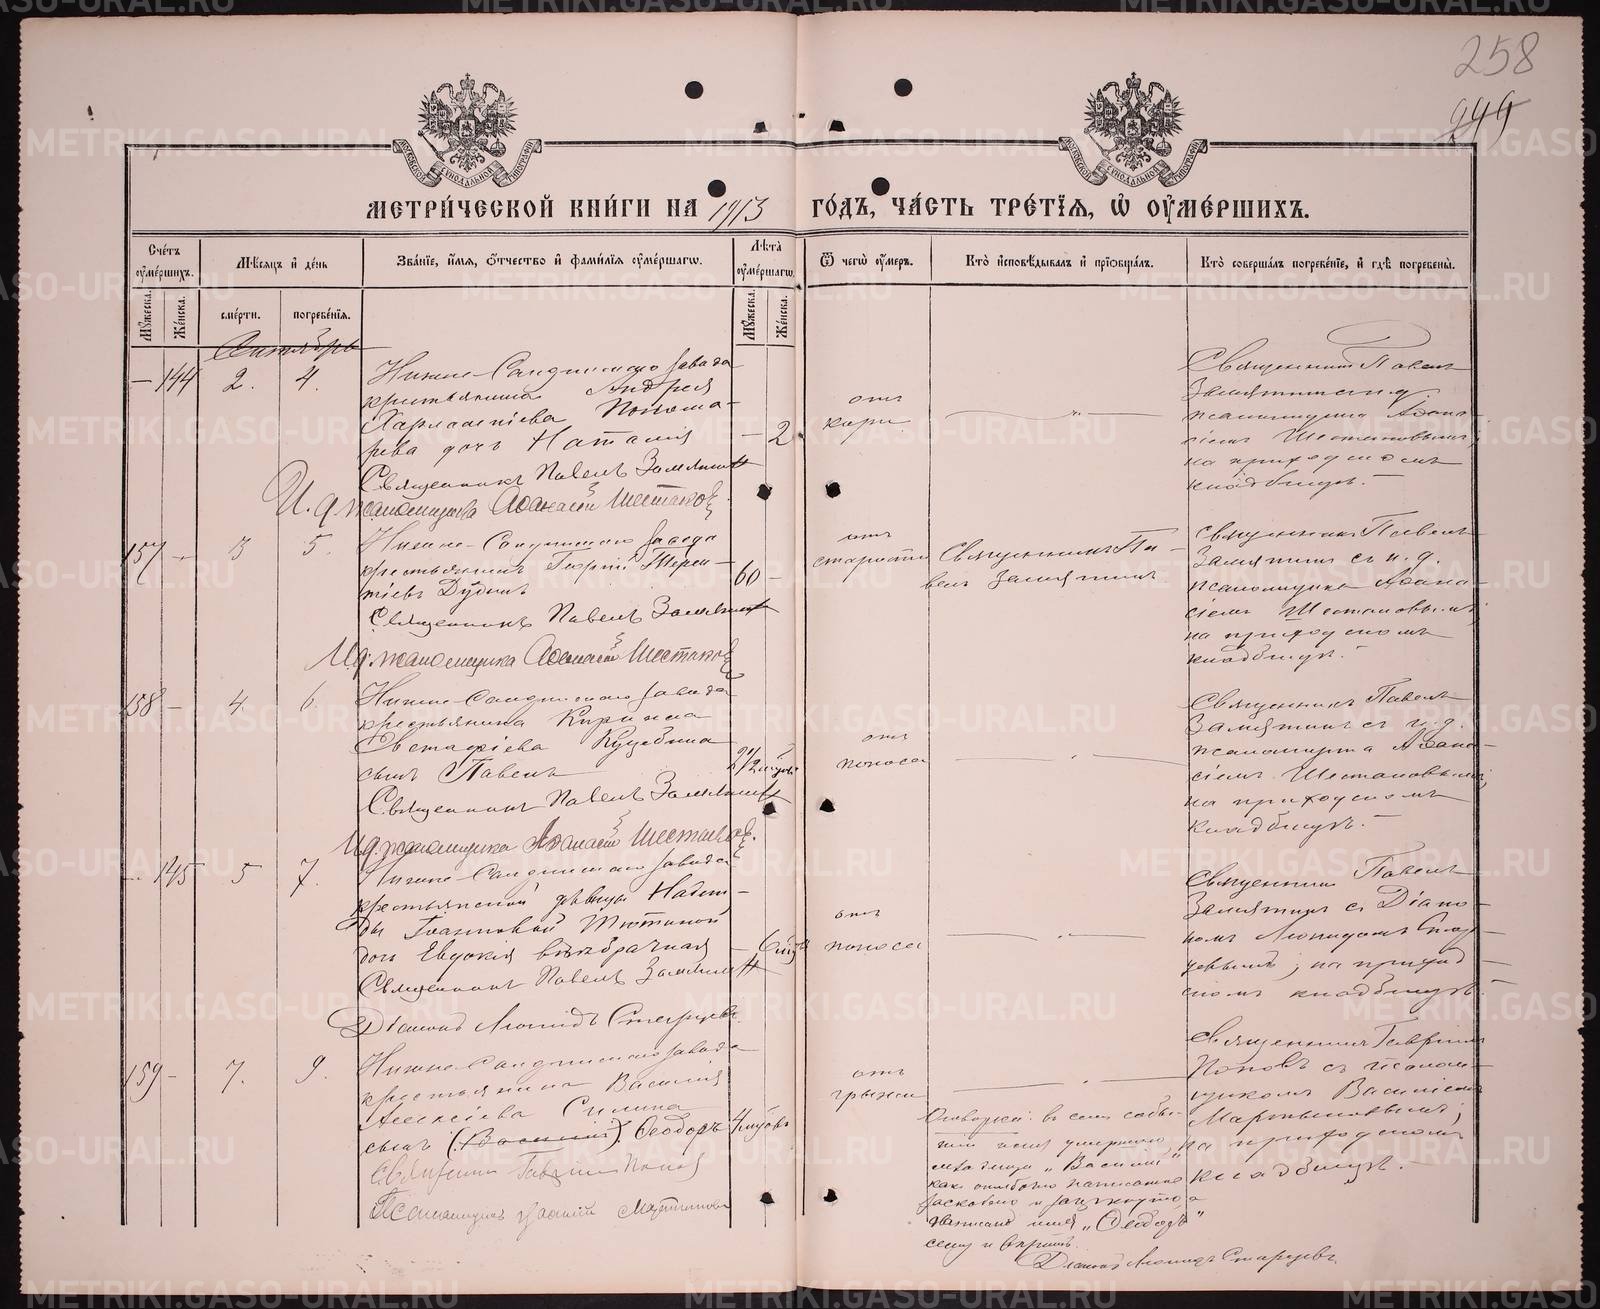 258
299
МЕТРИЧЕСКОЙ КНИГИ НА 1913 ГОДЪ, ЧАСТЬ ТРЕТІЯ, Ѿ ОУМЕРШИХЪ.
Счетъ оумершихъ.
Мѣсяцъ и день
Званіе, имя, отчество и фамилія оумершагѡ.
Лѣта оумершагѡ.
Ѿ чегѡ оумеръ.
Кто исповѣдывалъ и пріобщалъ.
Кто совершалъ погребеніе, и гдѣ погребены.
Мужеска.
Женска.
смерти.
погребенія.
Мужеска.
Женска.
Сентябрь
— 144 2. 4.
Нижне-Салдинскаго завода
крестьянина Андрея
Харлампіева Понома-
рева дочь Наталія
— 2
отъ
кори
Священникъ Павелъ
Замятинъ и. д.
псаломщика Аѳана-
сіемъ Шестаковымъ,
на приходскомъ
кладбищѣ.
Священникъ Павелъ Замятинъ
И. д. псаломщика Аѳанасій Шестаковъ
157 — 3 5.
Нижне-Салдинскаго завода
крестьянинъ Георгій Терен-
тіевъ Дудинъ
60 —
отъ
старости
Священникъ Па-
велъ Замятинъ
Священникъ Павелъ
Замятинъ съ и. д.
псаломщика Аѳана-
сіемъ Шестаковымъ,
на приходскомъ
кладбищѣ.
Священникъ Павелъ Замятинъ
И. д. псаломщика Аѳанасій Шестаковъ
158 — 4. 6.
Нижне-Салдинскаго завода
крестьянина Кирилла
Евстафіева
сынъ Павелъ
2 1/2
отъ
поноса
Священникъ Павелъ
Замятинъ съ и. д.
псаломщика Аѳана-
сіемъ Шестаковымъ,
на приходскомъ
кладбищѣ.
Священникъ Павелъ Замятинъ
И. д. псаломщика Аѳанасій Шестаковъ.
— 145 5 7.
Нижне-Салдинскаго завода
крестьянской дѣвицы Надеж-
ды Іоанновой
дочь Евдокія внѣбрачная
— 6
отъ
поноса
Священникъ Павелъ
Замятинъ съ Діако-
номъ Леонидомъ Стар-
цевымъ, на приход-
скомъ кладбищѣ.
Священникъ Павелъ Замятинъ
Діаконъ Леонидъ Старцевъ
159 — 7. 9.
Нижне-Салдинскаго завода
крестьянина Василія
Алексіева Силина
сынъ (Василій) Ѳеодоръ
4
отъ
грыжи
Священникъ Гавріилъ
Поповъ съ псалом-
щикомъ Василіемъ
Мартыновымъ,
на приходскомъ
кладбищѣ.
Священникъ Гавріилъ Поповъ
Псаломщикъ Василій Мартыновъ
Оговорка: въ семъ собы-
тіи имя умершаго
младенца „Василій"
какъ ошибочно написанное
и зачеркнуто, а
написано имя „Ѳеодоръ"
сему и вѣрить.
Діаконъ Леонидъ Старцевъ.
METRIKI.GASO-URAL.RU